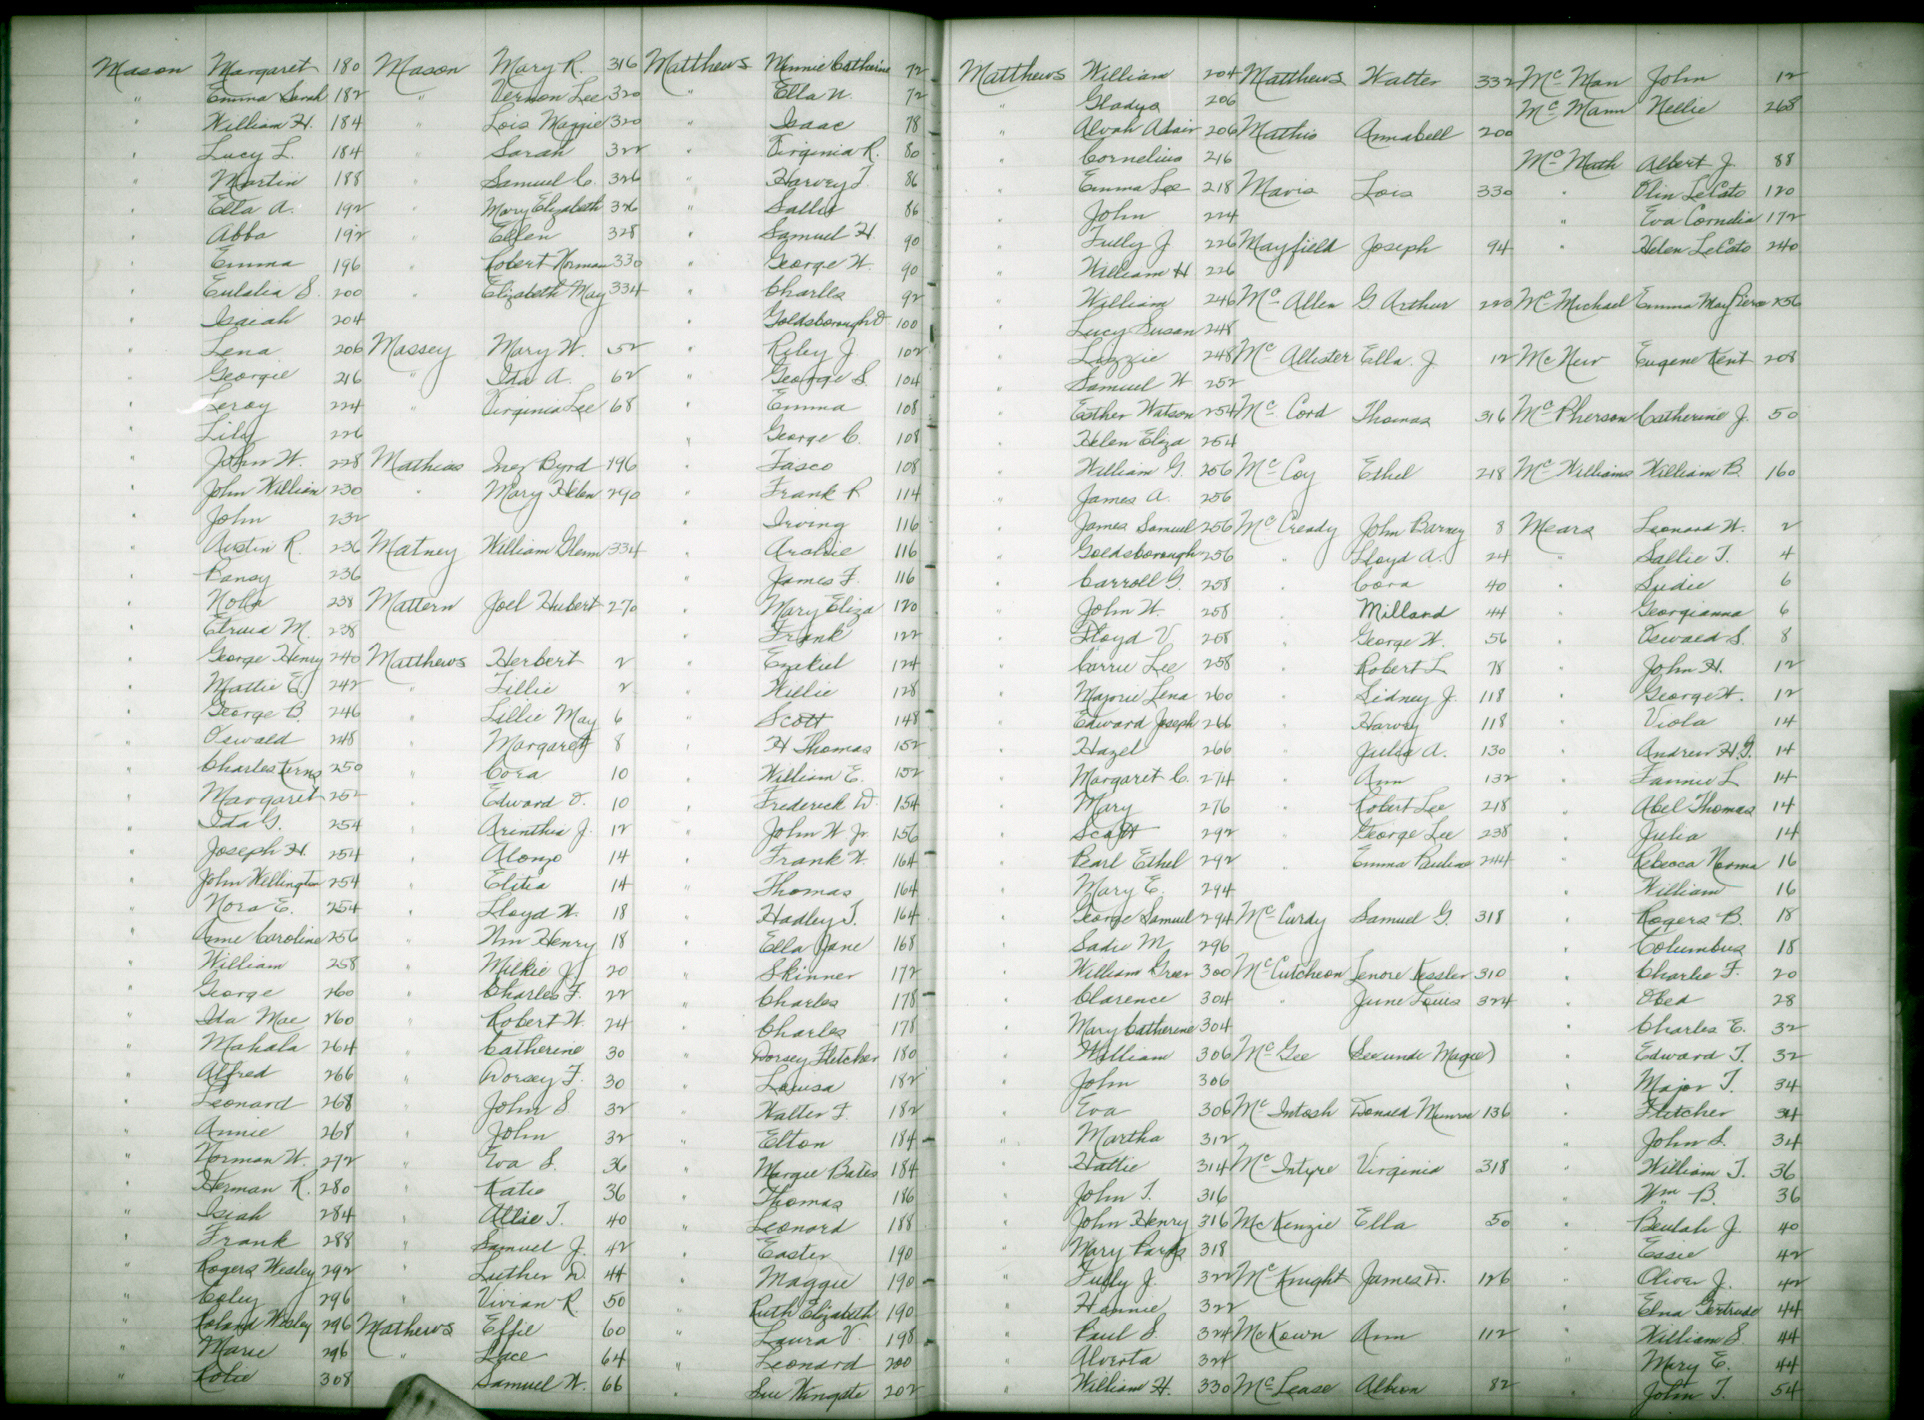 Mason Margaret 180
" Emma Sarah 182
" William H. 184
" Lucy L. 184
" Martin 188
" Ella A. 192
" Abba 192
" Emma 196
" Eulalia S. 200
" Isaiah 204
" Lena 206
" Georgie 216
" Leroy 224
" Lily 226
" John W. 228
" John William 230
" John 232
" Austin R. 236
" Pansy 236
" Nola 238
" M. 238
" George Henry 240
" Mattie E. 242
" George B. 246
" Oswald 248
" Charles Kerns 250
" Margaret 252
" Ida G. 254
" Joseph H. 254
" John Wellington 254
" Nora E. 254
" Anne Caroline 256
" William 258
" George 260
" Ida Mae 260
" Mahala 264
" Alfred 266
" Leonard 268
" Annie 268
" Norman W. 272
" Herman R. 280
" Isiah 284
" Frank 288
" Rogers Wesley 292
" Coley 296
" Roland Wesley 296
" Marie 296
" Rotie 308
Mason Mary R. 316
" Vernon Lee 320
" Lois Maggie 320
" Sarah 322
" Samuel C. 326
" Mary Elizabeth 326
" Ellen 328
" Robert Norman 330
" Elizabeth May 334
Massey Mary W. 52
" Ida A. 62
" Virginia Lee 68
Mathias Inez Byrd 196
" Mary Helen 290
Matney William Glenn 334
Mattern Joel Hubert 270
Matthews Herbert 2
" Tillie 2
" Lillie May 6
" Margaret 8
" Cora 10
" Edward D. 10
" Arinthia J. 12
" Alonzo 14
" Elitia 14
" Lloyd W. 18
" Wm Henry 18
" Milkie J. 20
" Charles F. 22
" Robert W. 24
" Catherine 30
" Dorsey F. 30
" John S. 32
" John 32
" Eva S. 36
" Katie 36
" Allie T. 40
" Samuel J. 42
" Luther D. 44
" Vivian R. 50
Mathews Effie 60
" Lace 64
Samuel W. 66
Matthews Minnie Catherine 72
" Ella N. 72
" Isaac 78
" Virginia R. 80
" Harvey T. 86
" Sallie 86
" Samuel H. 90
" George W. 90
" Charlls 92
" Goldsborough D 100
" Riley J. 102
" George S. 104
" Emma 108
" George C. 108
" Fasco 108
" Frank P. 114
" Irving 116
" Archie 116
" James F. 116
" Mary Eliza 120
" Frank 122
" Ezekiel 124
" Willie 128
" Scott 148
" H Thomas 152
" William E. 152
" Frederick D. 154
" John W Jr 156
" Frank W. 164
" Thomas 164
" Hadley T. 164
" Ella Jane 168
" Skinner 172
" Charles 178
" Charles 178
" Dorsey Fletcher 180
" Louisa 182
" Walter F. 182
" Elton 184
" Margie Bates 184
" Thomas 186
" Leonard 188
" Easter 190
" Maggie 190
" Ruth Elizabeth 190
" Laura V. 198
" Leonard 200
" Sue Wingate 202
Matthews William 204
" Gladys 206
" Alvah Adair 206
" Cornelius 216
" Emma Lee 218
" John 224
" Tully J. 226
" William H. 226
" William 246
" Lucy Susan 248
" Lizzie 248
" Samuel W. 252
" Esther Watson 254
" Helen Eliza 254
" William G. 256
" James A. 256
" James Samuel 256
" Goldsborough 256
" Carroll G. 258
" John W. 258
" Floyd V. 258
" Carrie Lee 258
" Majorie Lena 260
" Edward Joseph 266
" Hazel 266
" Margaret C. 274
" Mary 276
" Scott 292
" Pearl Ethel 292
" Mary E. 294
" George Samuel 294
" Sadie M. 296
" William Greer 300
" Clarence 304
" Mary Catherine 304
" William 306
" John 306
" Eva 306
" Martha 312
" Hattie 314
" John T. 316
" John Henry 316
" Mary Parks 318
" Tully J. 322
" Hannie 322
" Paul S. 324
" Alverta 324
" William H. 330
Matthews Walter 332
Mathis Annabell 200
Mavis Lois 330
Mayfield Joseph 94
McAllen G Arthur 220
McAllister Ella. J 12
McCord Thomas 316
McCoy Ethel 218
McCready John Barney 8
" Lloyd A. 24
" Cora 40
" Millard 44
" George W. 56
" Robert L 78
" Sidney J. 118
" Harvey 118
" Julia A. 130
" Ann 132
" Robert Lee 218
" George Lee 238
" Emma Pauline 244
McCurdy Samuel G. 318
McCutcheon Lenore Kessler 310
" June Louis 324
McGee (See under Magee)
McIntosh Donald Munroe 136
McIntyre Virginia 318
McKenzie Ella 50
McKnight James D. 126
McKown Ann 112
McLease Albion 82
McMan John 12
McMann Nellie 268
McMath Albert J. 88
" Olin LeCato 120
" Eva Cornelia 172
" Helen LeCato 240
McMichael Emma May Pierce 256
McNew Eugene Kent 208
McPherson Catherine J. 50
McWilliams William B. 160
Mears Leonard W. 2
" Sallie T. 4
" Sudie 6
" Georgianna 6
" Oswald S. 8
" John H. 12
" George W. 12
" Viola 14
" Andrew H.J. 14
" Fannie L 14
" Abel Thomas 14
" Julia 14
" Rebecca Norma 16
" William 16
" Rogers B. 18
" Columbus 18
" Charlie F. 20
" Obed 28
" Charles E. 32
" Edward T. 32
" Major T. 34
" Fletcher 34
" John S. 34
" William T. 36
" Wm B. 36
" Beulah J. 40
" Essie 42
" Oliver J. 42
" Edna Gertrude 44
" William S. 44
" Mary E. 44
" John T. 54